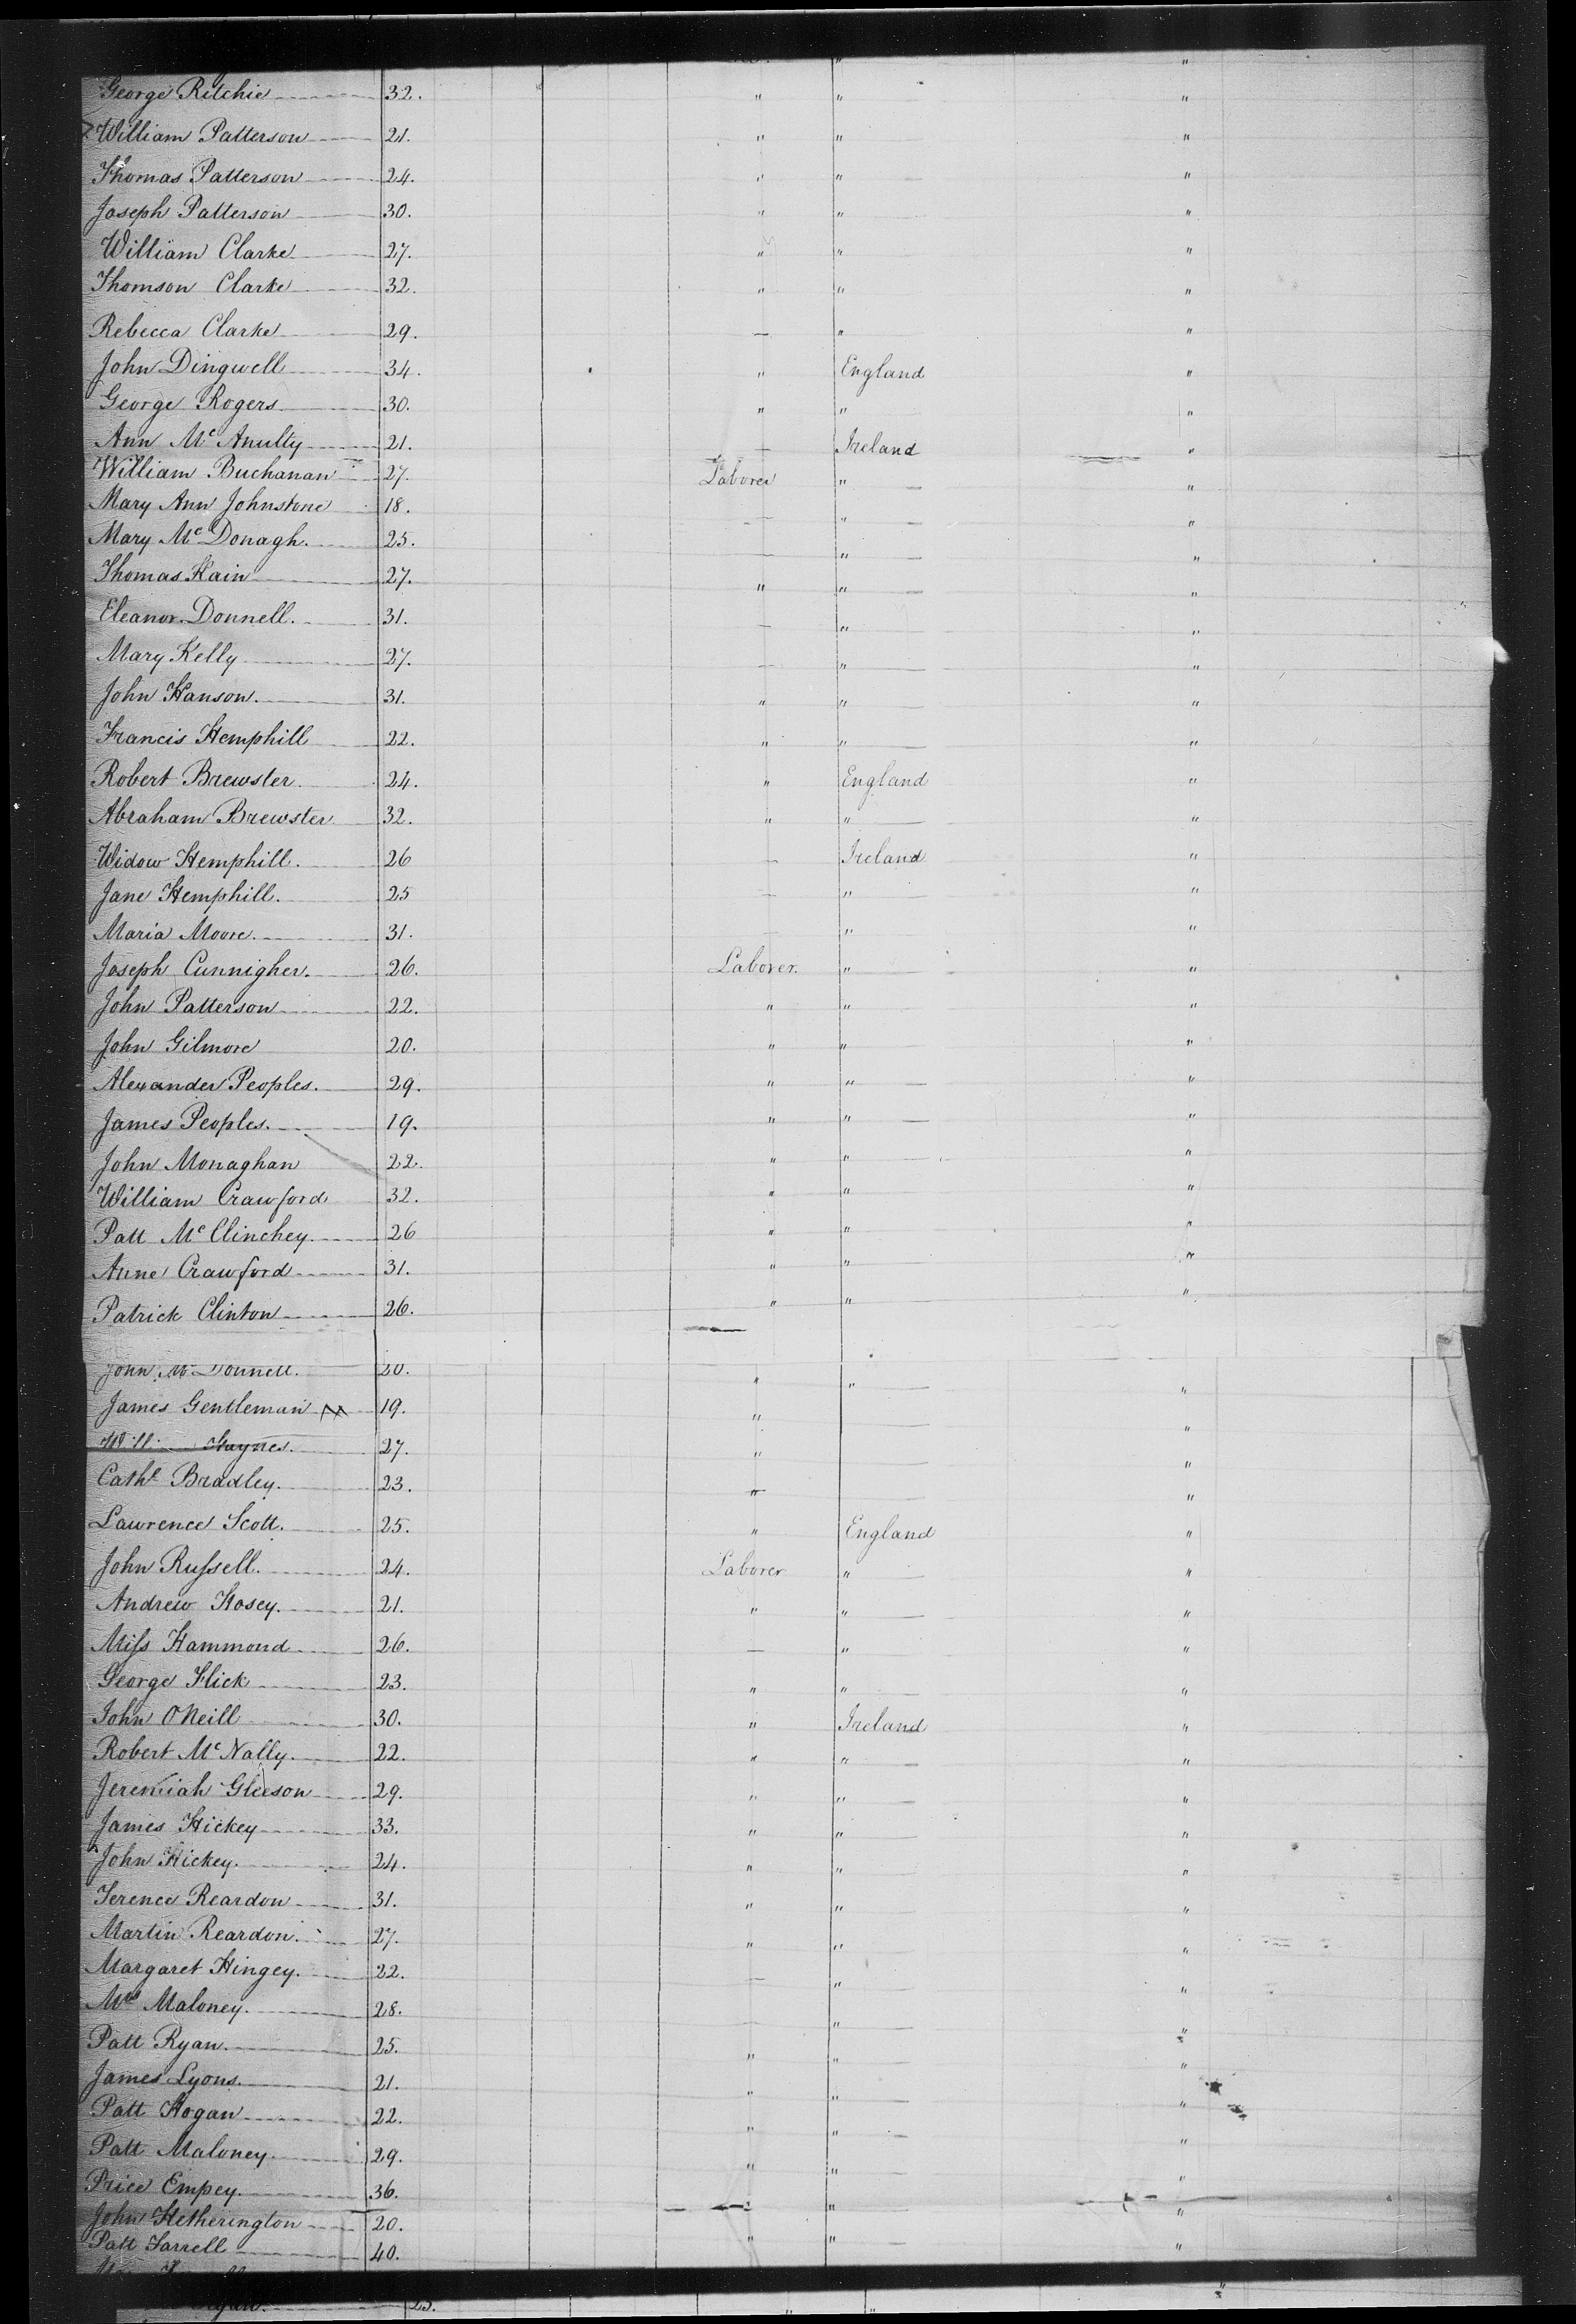 George Ritchie 32. " " "
William Patterson 21. " " "
Thomas Patterson 24. " " "
Joseph Patterson 30. " " "
William Clarke 27. " " "
Thomson Clarke 32. " " "
Rebecca Clarke 29. — " "
John Dingwell 34. " England "
George Rogers 30. " " "
Ann Mc Anulty 21. — Ireland "
William Buchanan 27. Laborer " "
Mary Ann Johnstone 18. — " "
Mary Mc Donagh. 25. — " "
Thomas Kain 27. " " "
Eleanor Donnell. 31. — " "
Mary Kelly 27. — " "
John Hanson. 31. " " "
Francis Hemphill 22. " " "
Robert Brewster. 24. " England "
Abraham Brewster 32. " " "
Widow Hemphill. 26 — Ireland "
Jane Hemphill. 25 — " "
Maria Moore. 31. — " "
Joseph Cunnigher. 26. Laborer. " "
John Patterson 22. " " "
John Gilmore 20. " " "
Alexander Peoples. 29. " " "
James Peoples. 19. " " "
John Monaghan 22. " " "
William Crawford 32. " " "
Patt Mc Clinchey. 26 " " "
Anne Crawford 31. " " "
Patrick Clinton 26. " " "
John Mc Donnell. 20. " " "
James Gentleman 19. " "
Haynes. 27. " "
Cathe Bradley. 23. " "
Lawrence Scott. 25. " England "
John Russell. 24. Laborer " "
Andrew Hosey. 21. " " "
Miss Hammond 26. — " "
George Flick 23. " " "
John O'Neill 30. " Ireland "
Robert Mc Nally. 22. " " "
Jeremiah Gleeson 29. " " "
James Hickey 33. " " "
John Hickey. 24. " " "
Terence Reardon 31. " " "
Martin Reardon. 27. " " "
Margaret Hingey. 22. — " "
Mrs Maloney. 28. — " "
Patt Ryan. 25. " " "
James Lyons. 21. " " "
Patt Hogan 22. " " "
Patt Maloney. 29. " " "
Price Empey. 36. " " "
John Hetherington 20. " "
Patt Farrell 40. " " "